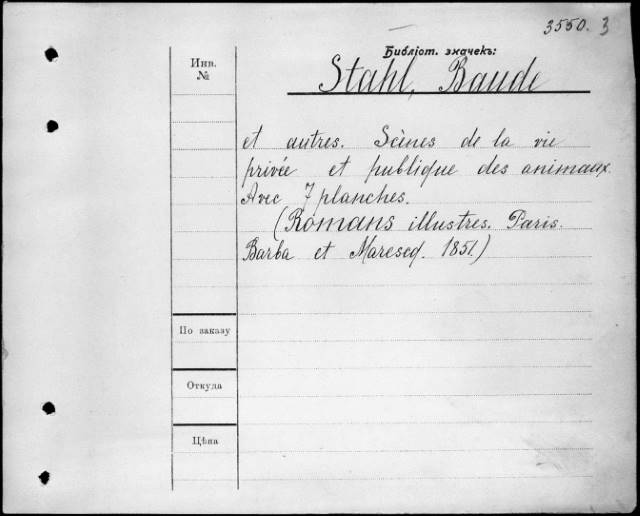 3550. 3
Библіот. значекъ:
Инв.
№
Stahl, Baude
et autres. Scènes de la vie
privée et publique des animaux.
Avec 7 planches.
(Romans illustres. Paris.
Barba et Maresed. 1851.)
По заказу
Откуда
Цѣна